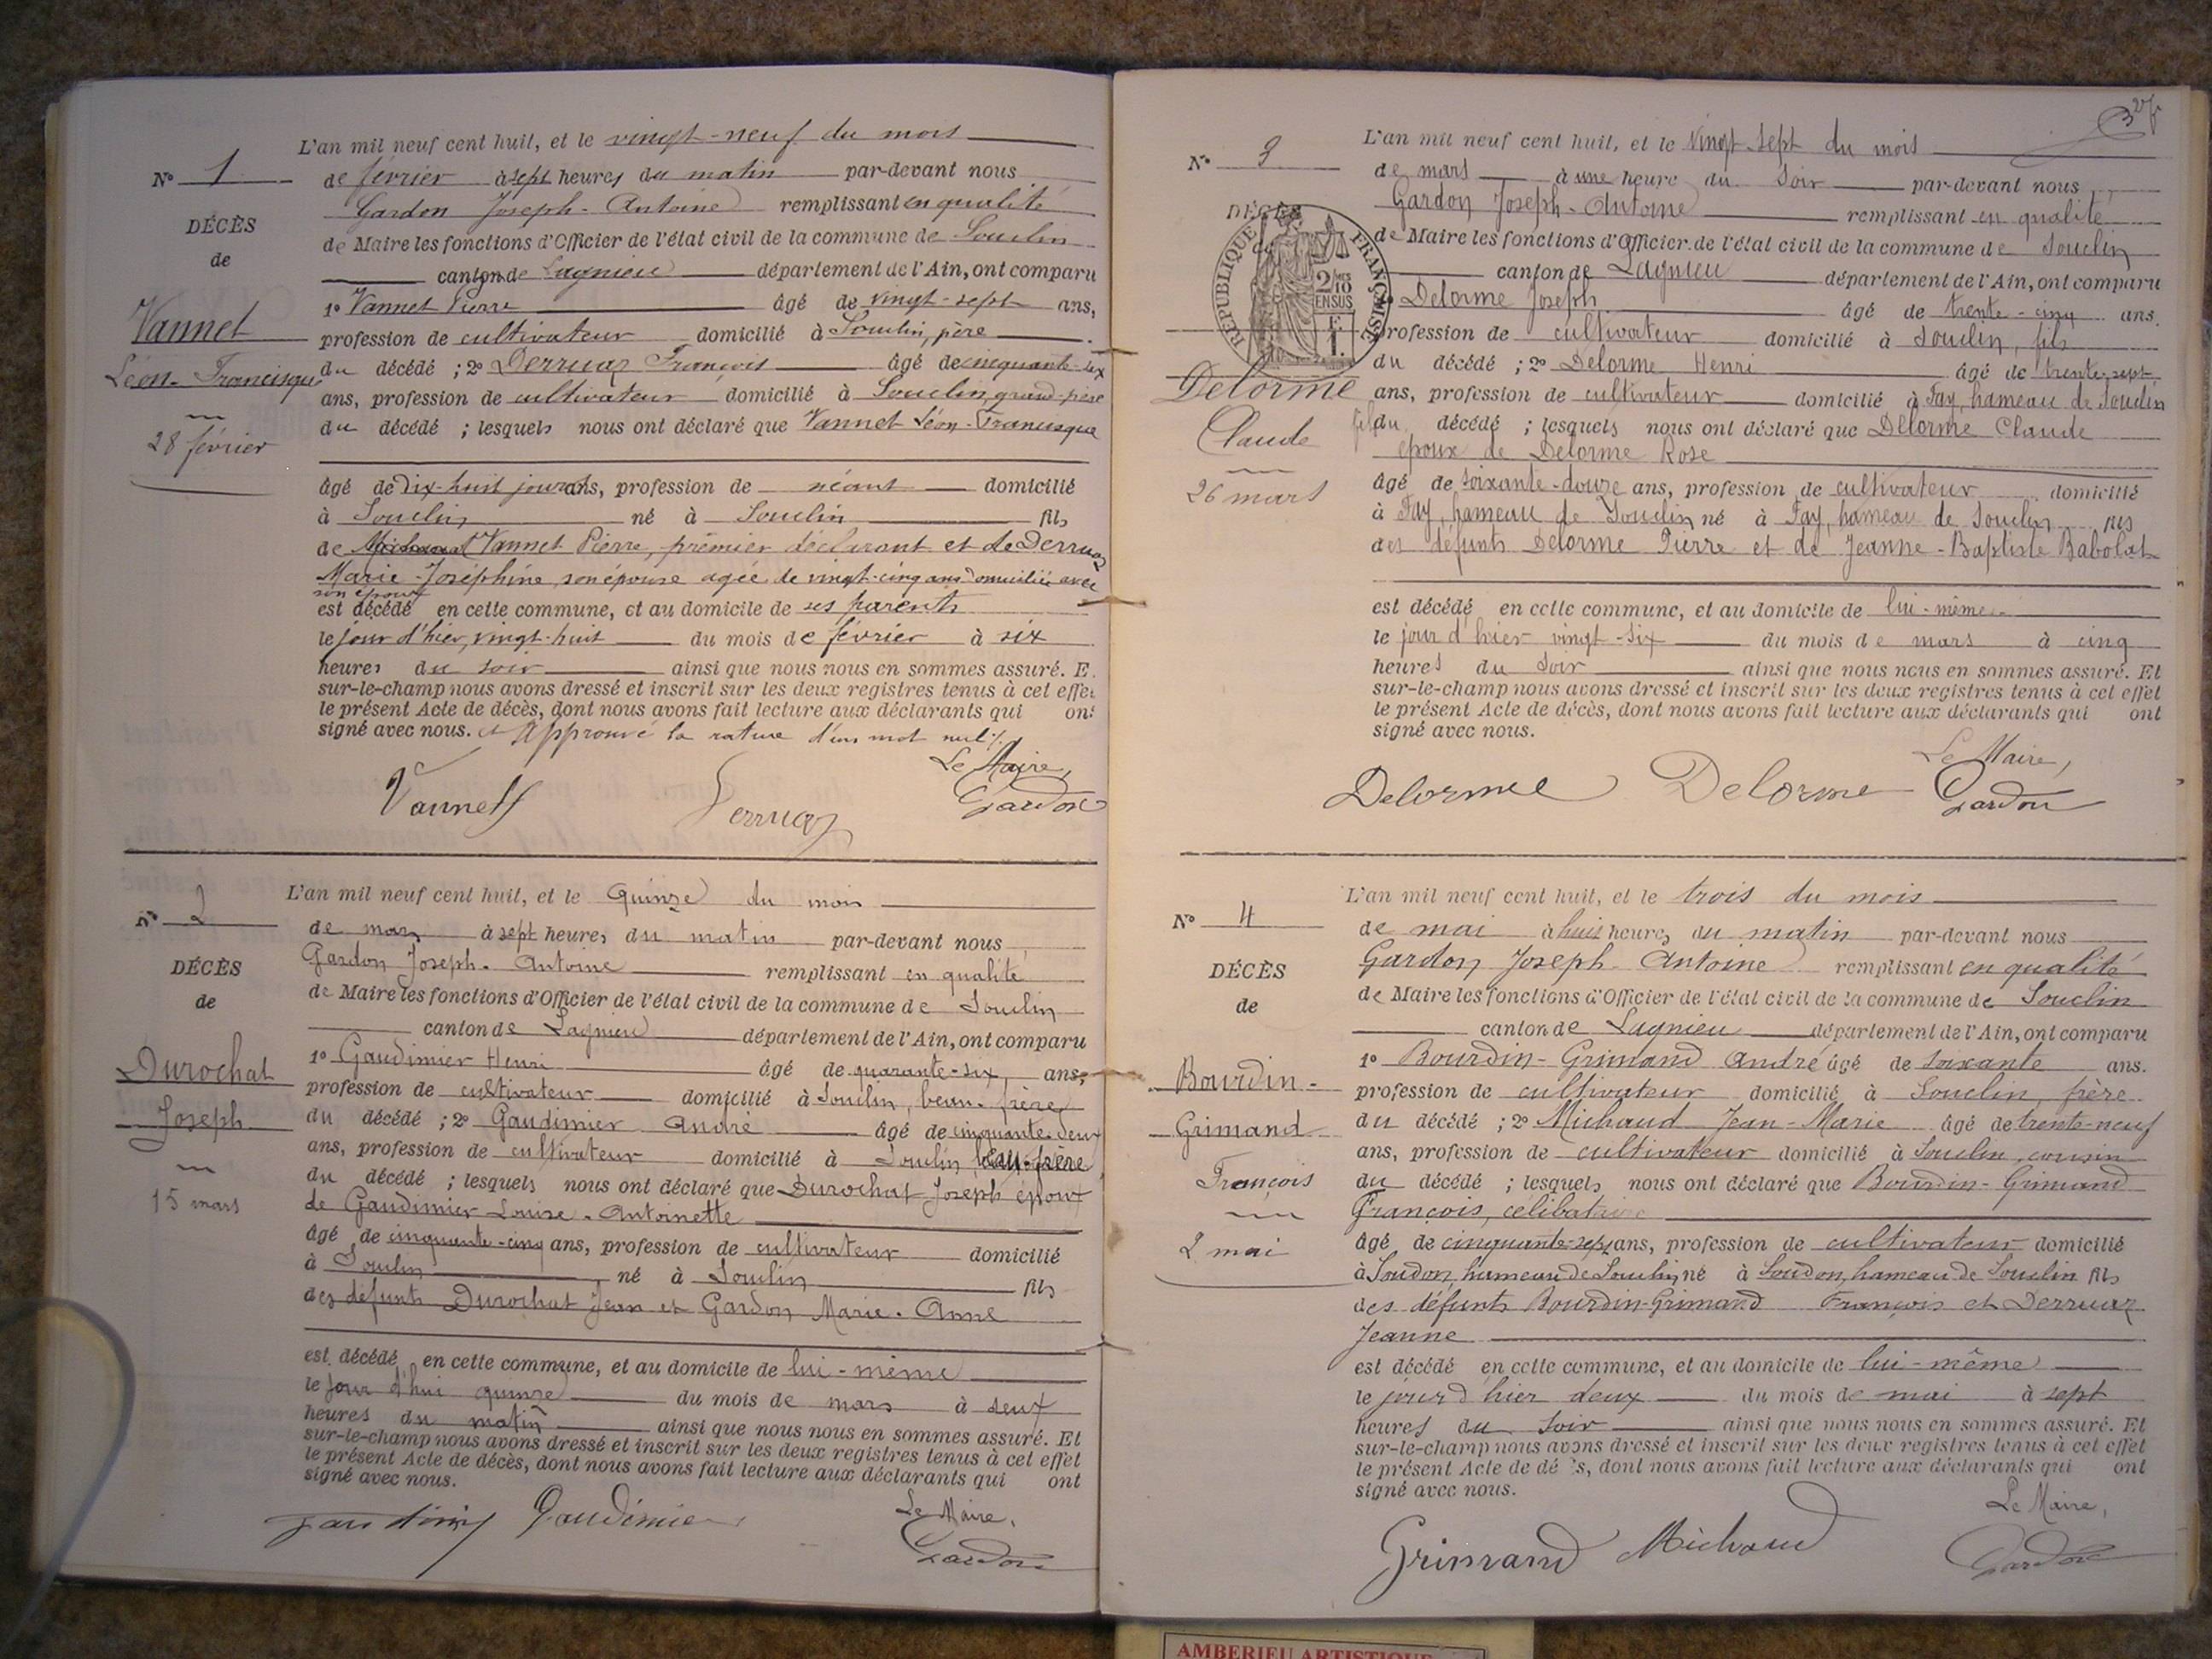 L'an mil neuf cent huit, et le vingt-neuf du mois
N° 1
de février à sept heures du matin par-devant nous
Gardon Joseph-Antoine remplissant en qualité
DÉCÈS
de Maire les fonctions d'Officier de l'état civil de la commune de Souclin
de
canton de Lagnieu département de l'Ain, ont comparu
1° Vannet Pierre âgé de vingt-sept ans,
Vannet
profession de cultivateur domicilié à Souclin, père
Léon-Francisque
du décédé ; 2° Derruaz François âgé de cinquante-six
ans, profession de cultivateur domicilié à Souclin, grand-père
28 février
du décédé ; lesquels nous ont déclaré que Vannet Léon-Francisque
âgé de dix-huit jours ans, profession de néant domicilié
à Souclin né à Souclin fils
de Vannet Pierre, premier déclarant et de Derruaz
Marie-Joséphine, son épouse agée de vingt-cinq ans domiciliée avec
son époux
est décédé en cette commune, et au domicile de ses parents
le jour d'hier, vingt-huit du mois de février à six
heures du soir ainsi que nous nous en sommes assuré. E
sur-le-champ nous avons dressé et inscrit sur les deux registres tenus à cet effet
le présent Acte de décès, dont nous avons fait lecture aux déclarants qui ont
signé avec nous. et Approuvé la rature d'un mot nul
Le Maire,
Vannet Derruaz Gardon
L'an mil neuf cent huit, et le quinze du mois
N° 2
de mars à sept heures du matin par-devant nous
Gardon Joseph-Antoine remplissant en qualité
DÉCÈS
de Maire les fonctions d'Officier de l'état civil de la commune de Souclin
de
canton de Lagnieu département de l'Ain, ont comparu
1° Gaudimier Henri âgé de quarante-six ans,
Durochat
profession de cultivateur domicilié à Souclin, beau-frère
Joseph
du décédé ; 2° Gaudimier André âgé de cinquante-deux
ans, profession de cultivateur domicilié à Souclin beau-frère
15 mars
du décédé ; lesquels nous ont déclaré que Durochat Joseph époux
de Gaudimier Louise-Antoinette
âgé de cinquante-cinq ans, profession de cultivateur domicilié
à Souclin né à Souclin fils
des défunts Durochat Jean et Gardon Marie-Anne
est décédé en cette commune, et au domicile de lui-même
le jour d'hui quinze du mois de mars à deux
heures du matin ainsi que nous nous en sommes assuré. Et
sur-le-champ nous avons dressé et inscrit sur les deux registres tenus à cet effet
le présent Acte de décès, dont nous avons fait lecture aux déclarants qui ont
signé avec nous.
Le Maire,
Gaudimier Gardon
L'an mil neuf cent huit, et le vingt-sept du mois
N° 3
de mars à une heure du soir par-devant nous
Gardon Joseph-Antoine remplissant en qualité
DÉCÈS
RÉPUBLIQUE FRANÇAISE
2/10
EN SUS
de Maire les fonctions d'Officier de l'état civil de la commune de Souclin
canton de Lagnieu département de l'Ain, ont comparu
Delorme Joseph âgé de trente-cinq ans.
profession de cultivateur domicilié à Souclin, fils
du décédé ; 2° Delorme Henri âgé de trente-sept
Delorme
ans, profession de cultivateur domicilié à Fay, hameau de Souclin
Claude
fils du décédé ; lesquels nous ont déclaré que Delorme Claude
époux de Delorme Rose
26 mars
âgé de soixante-douze ans, profession de cultivateur domicilié
à Fay, hameau de Souclin né à Fay, hameau de Souclin fils
des défunts Delorme Pierre et de Jeanne-Baptiste Babolat
est décédé en cette commune, et au domicile de lui-même
le jour d'hier vingt-six du mois de mars à cinq
heures du soir ainsi que nous nous en sommes assuré. Et
sur-le-champ nous avons dressé et inscrit sur les deux registres tenus à cet effet
le présent Acte de décès, dont nous avons fait lecture aux déclarants qui ont
signé avec nous.
Le Maire,
Delorme Delorme Gardon
L'an mil neuf cent huit, et le trois du mois
N° 4
de mai à huit heures du matin par-devant nous
Gardon Joseph Antoine remplissant en qualité
DÉCÈS
de Maire les fonctions d'Officier de l'état civil de la commune de Souclin
de
canton de Lagnieu département de l'Ain, ont comparu
1° Bourdin-Grimand André âgé de soixante ans.
Bourdin-
profession de cultivateur domicilié à Souclin, frère
Grimand
du décédé ; 2° Michaud Jean-Marie âgé de trente-neuf
ans, profession de cultivateur domicilié à Souclin, cousin
François
du décédé ; lesquels nous ont déclaré que Bourdin-Grimand
François, célibataire
2 mai
âgé de cinquante-sept ans, profession de cultivateur domicilié
à Soudon, hameau de Souclin, né à Soudon, hameau de Souclin fils
des défunts Bourdin-Grimand François et Derruaz
Jeanne
est décédé en cette commune, et au domicile de lui-même
le jour d'hier deux du mois de mai à sept
heures du soir ainsi que nous nous en sommes assuré. Et
sur-le-champ nous avons dressé et inscrit sur les deux registres tenus à cet effet
le présent Acte de dé s, dont nous avons fait lecture aux déclarants qui ont
signé avec nous.
Le Maire,
Grimand Michaud Gardon
AMBERIEU ARTISTIQUE